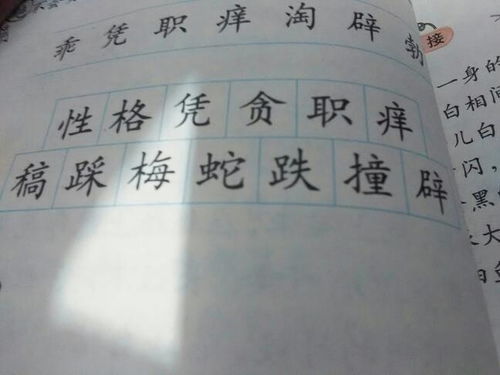 乖凭职痒淘辟勃
性格凭贪职痒
稿踩梅蛇跌撞辟
接
一身的
白相间
儿白
闪，
黑
大